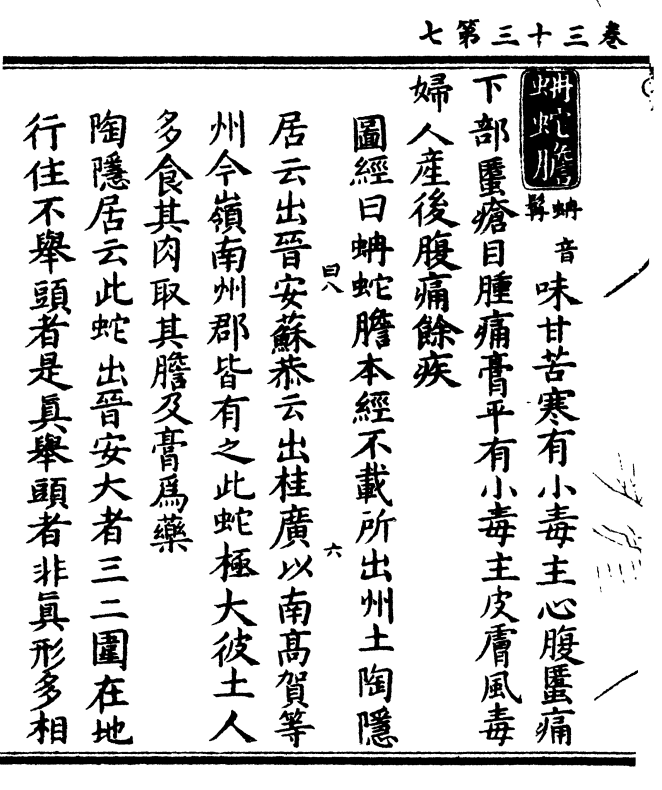 卷三十三第七
蚺蛇膽
蚺音髯
味甘苦寒有小毒主心腹䘌痛
下部䘌瘡目腫痛膏平有小毒主皮膚風毒
婦人産後腹痛餘疾
圖經曰蚺蛇膽本經不載所出州土陶隱
居云出晉安蘇恭云出桂廣以南高賀等
州今嶺南州郡皆有之此蛇極大彼土人
多食其肉取其膽及膏爲藥
陶隱居云此蛇出晉安大者三二圍在地
行住不舉頭者是眞舉頭者非眞形多相